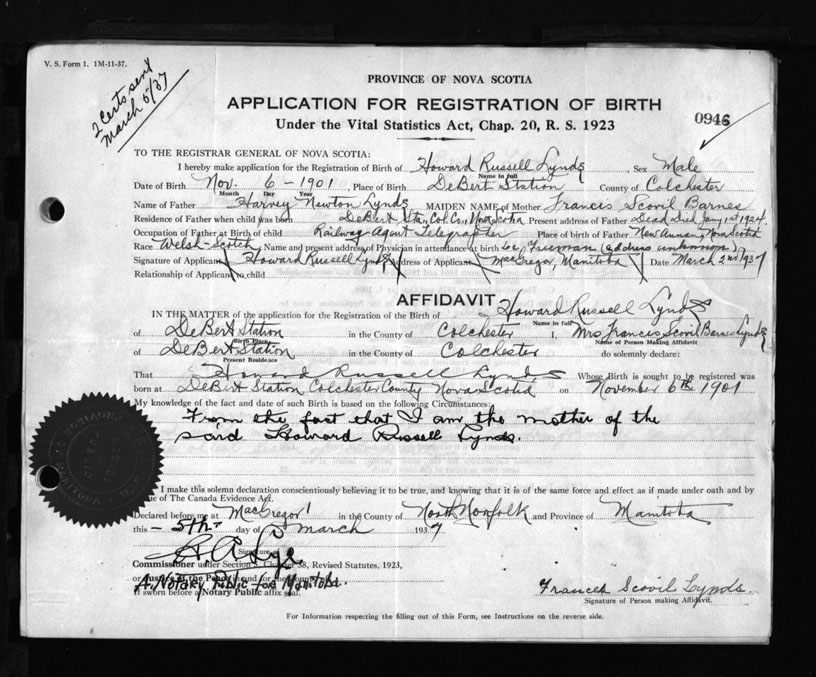 V. S. Form 1. 1M-11-37.
2 Certs sent
March 5/37
PROVINCE OF NOVA SCOTIA
APPLICATION FOR REGISTRATION OF BIRTH
0946
Under the Vital Statistics Act, Chap. 20, R. S. 1923
TO THE REGISTRAR GENERAL OF NOVA SCOTIA:
I hereby make application for the Registration of Birth of Howard Russell Lynds Sex Male
Name in full
Date of Birth Nov. 6 - 1901 Place of Birth DeBert Station County of Colchester
Month Day Year
Name of Father Harvey Newton Lynds MAIDEN NAME of Mother Francis Scovil Barnes
Residence of Father when child was born DeBert Sta, Col. Co, Nova Scotia Present address of Father Dead Died Jany 1st 1924
Occupation of Father at Birth of child Railway Agent Telegrapher Place of Birth of Father New Annan, Nova Scotia
Race Welsh-Scotch Name and present address of Physician in attendance at birth Freeman (address unknown)
Signature of Applicant Howard Russell Lynds Address of Applicant MacGregor, Manitoba Date March 2nd 1937
Relationship of Applicant to child
AFFIDAVIT
IN THE MATTER of the application for the Registration of Birth of Howard Russell Lynds
Name in full
of DeBert Station in the County of Colchester I, Mrs Francis Scovil Barnes Lynds
Birth Place Name of Person Making Affidavit
of DeBert Station in the County of Colchester do solemnly declare:
Present Residence
That Howard Russell Lynds Whose Birth is sought to be registered was
born at DeBert Station Colchester County Nova Scotia on November 6th 1901
My knowledge of the fact and date of such Birth is based on the following Circumstances:
From the fact that I am the mother of the
said Howard Russell Lynds.
I make this solemn declaration conscientiously believing it to be true, and knowing that it is of the same force and effect as if made under oath and by
of The Canada Evidence Act.
Declared before me at MacGregor in the County of North Norfolk and Province of Manitoba
this - 5th - day of March 1937
Signature
Commissioner under Section 8, Chapter 38, Revised Statutes, 1923,
or Justice of the Peace in and for the County
A Notary Public for Manitoba.
If sworn before a Notary Public affix seal.
Frances Scovil Lynds.
Signature of Person making Affidavit.
For Information respecting the filling out of this Form, see Instructions on the reverse side.